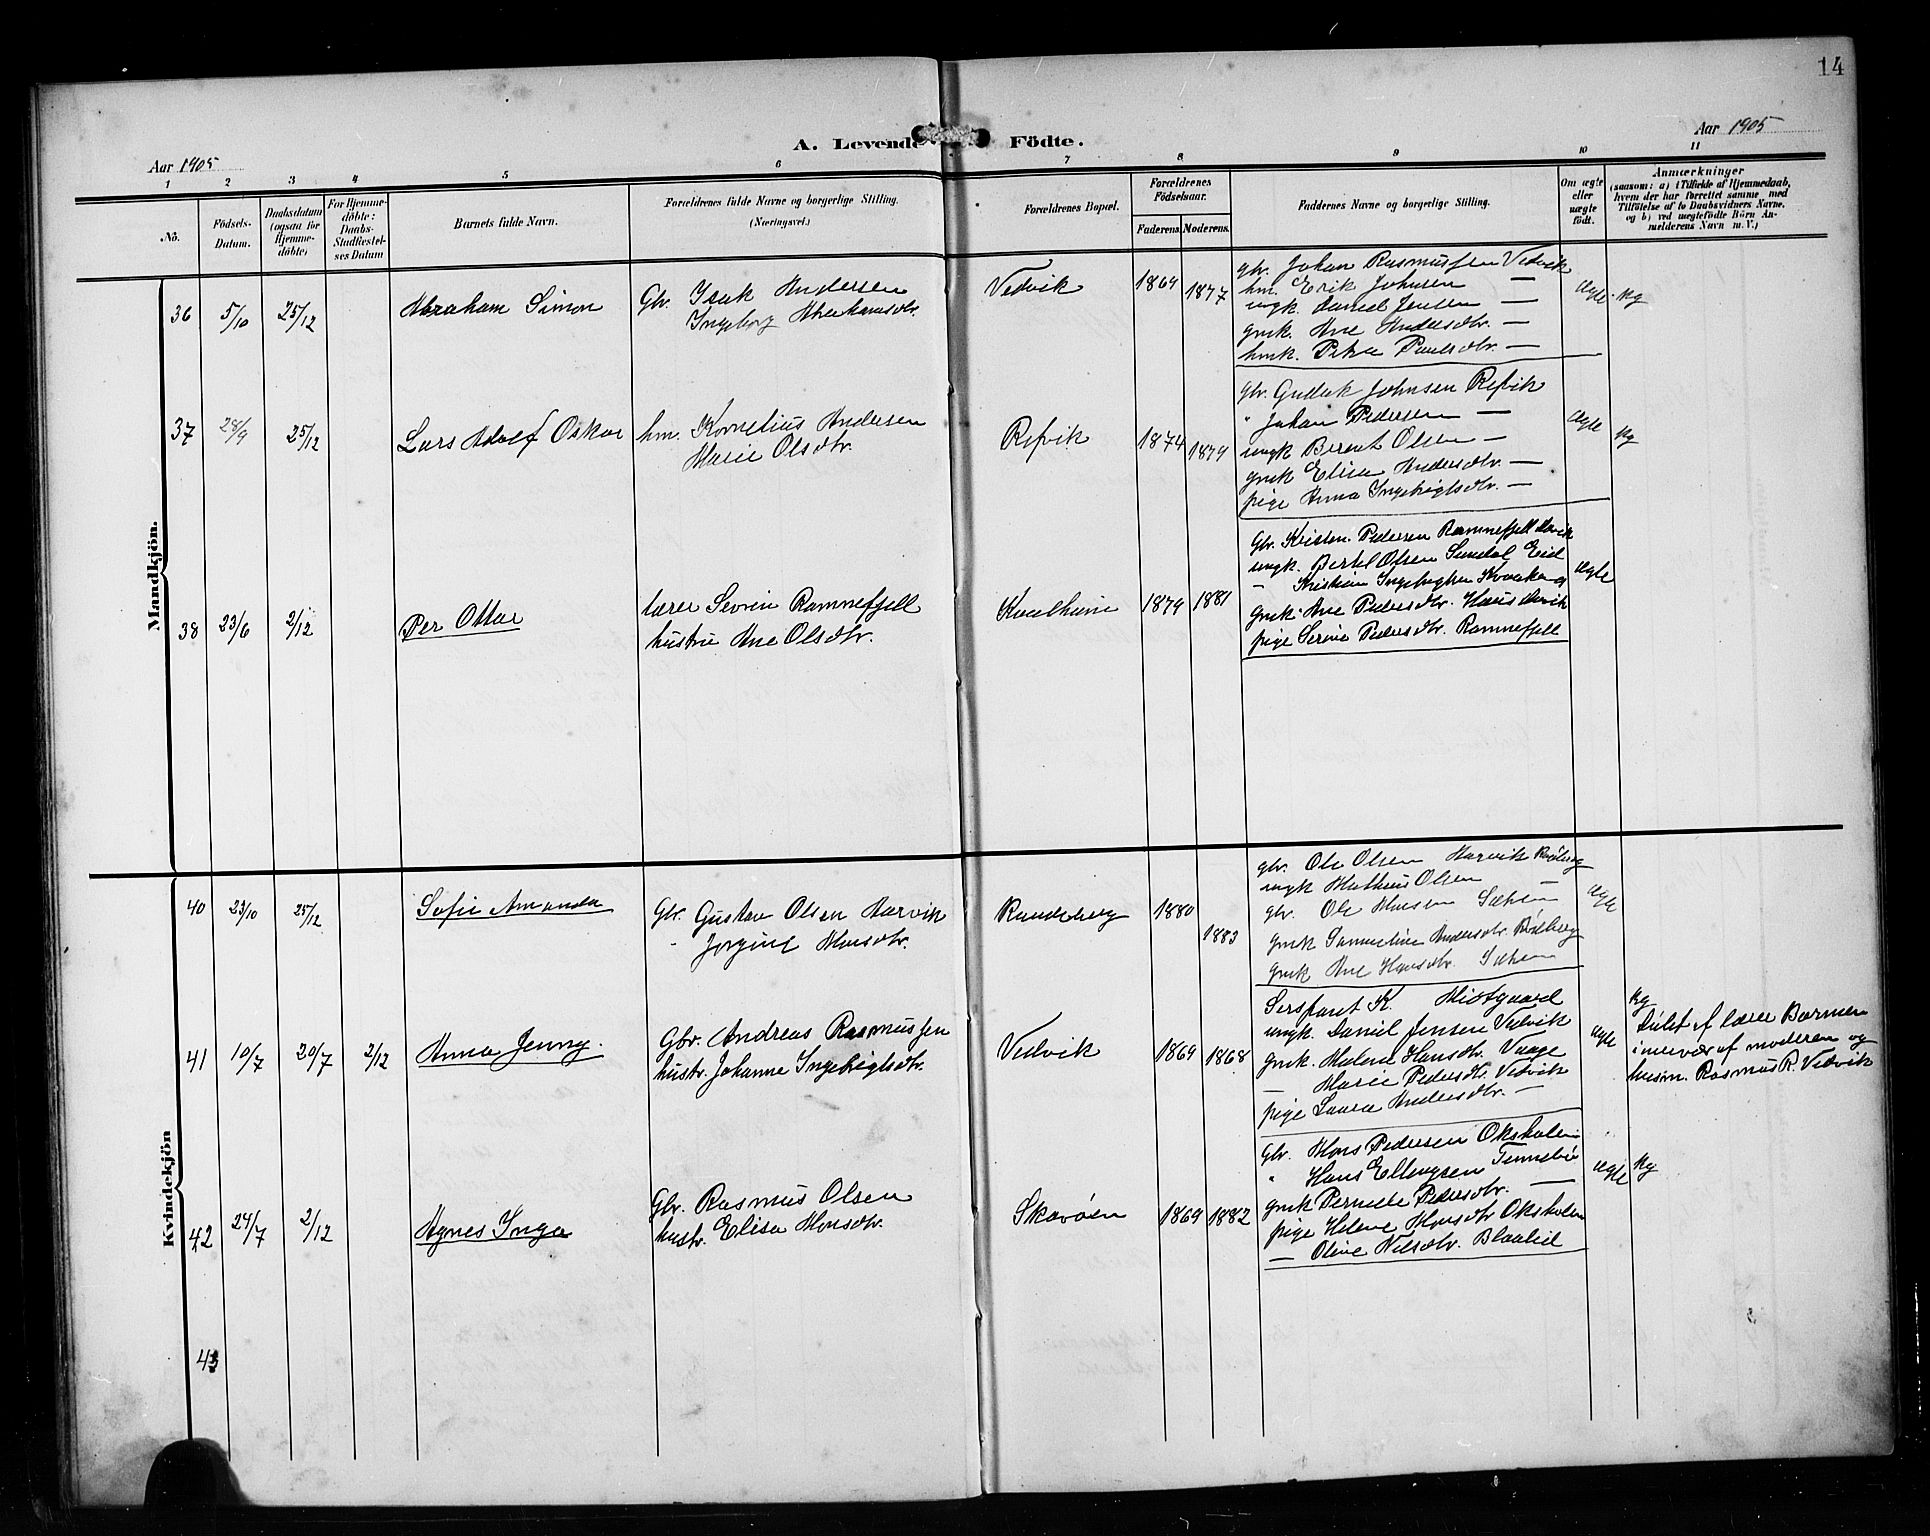 14
Aar 1905
A. Levende Födte.
Aar 1905
1 2 3 4 5 6 7 8 9 10 11
No.
Födsels-
Datum.
Daabsdatum
(ogsaa for
Hjemme-
döbte)
For Hjemme-
döbte:
Daabs-
Stadfæstel-
ses Datum
Barnets fulde Navn.
Forældrenes fulde Navne og borgerlige Stilling.
(Næringsvei.)
Forældrenes Bopæl.
Forældrenes
Födselsaar.
Faderens. Moderens.
Faddernes Navne og borgerlige Stilling.
Om ægte
eller
uægte
födt.
Anmærkninger
(saasom: a) i Tilfælde af Hjemmedaab,
hvem der har forrettet samme med
Tilföielse af to Daabsvidners Navne.
og b) ved uægtefödte Börn An-
melderens Navn m. V.)
Mandkjön.
36 5/10 25/12 Abraham Simon
Gbr. Isak Andersen
Ingeborg Abrahamsdtr.
Vedvik 1869 1877
gbr. Johan Rasmussen Vedvik
hm. Erik Johnsen —
ungk. Daniel Jensen —
gmk. Ane Andersdtr. —
hmk. Petra Paulsdtr. —
ægte. kg
37 28/9 25/12 Lars Adolf Oskar
hm. Kornelius Andersen
Marie Olsdtr.
Refvik 1874 1879
gbr. Gullak Johnsen Refvik
" Johan Pedersen —
ungk Bernt Olsen —
gmk Elisa Andersdtr. —
pige Anna Ingebrigtsdtr. —
ægte kg
38 23/6 2/12 Per Ottar
lærer Sevrin Ramnefjell
hustru Ane Olsdtr.
1879 1881
Gbr. Kristen Pedersen Ramnefjell Davik
ungk. Bertel Olsen Sundal Eid
— Kristian
gmk. Ane Pedersdtr. Haus Davik
pige Serine Pedersdtr. Ramnefjell
ægte
Kvindekjön
40 23/10 25/12 Sofie Amanda
Gbr. Gustav Olsen Harvik
Jørgine Monsdtr.
Raudeberg 1880 1883
gbr. Ole Olsen Harvik
ungk Mathias Olsen —
gbr. Ole Monsen
gmk Samueline Andersdtr.
gmk Ane Hansdtr.
ægte
41 10/7 20/7 2/12 Anna Jenny.
Gbr. Andreas Rasmussen
hustr. Johanne Ingebrigtsdtr.
Vedvik 1869 1868
Sersjant K. Midtgaard
ungk. Daniel Jensen Vedvik
gmk. Malene Hansdtr. Vaage
— Marie Pedersdtr. Vedvik
pige Laura Andersdtr. —
ægte
kg
Døbt af lærer Barmen
i nærvær af moderen og
husm. Rasmus R. Vedvik
42 24/7 2/12 Agnes Inga
Gbr. Rasmus Olsen
hustr. Elisa Monsdtr.
Skavøen 1869 1882
Gbr. Mons Pedersen Oksholen
" Hans Ellingsen Tennebø
gmk Pernille Pedersdtr. —
pige Helene Monsdtr Oksholen
— Oline Nilsdtr. Blaalid
ægte kg
43